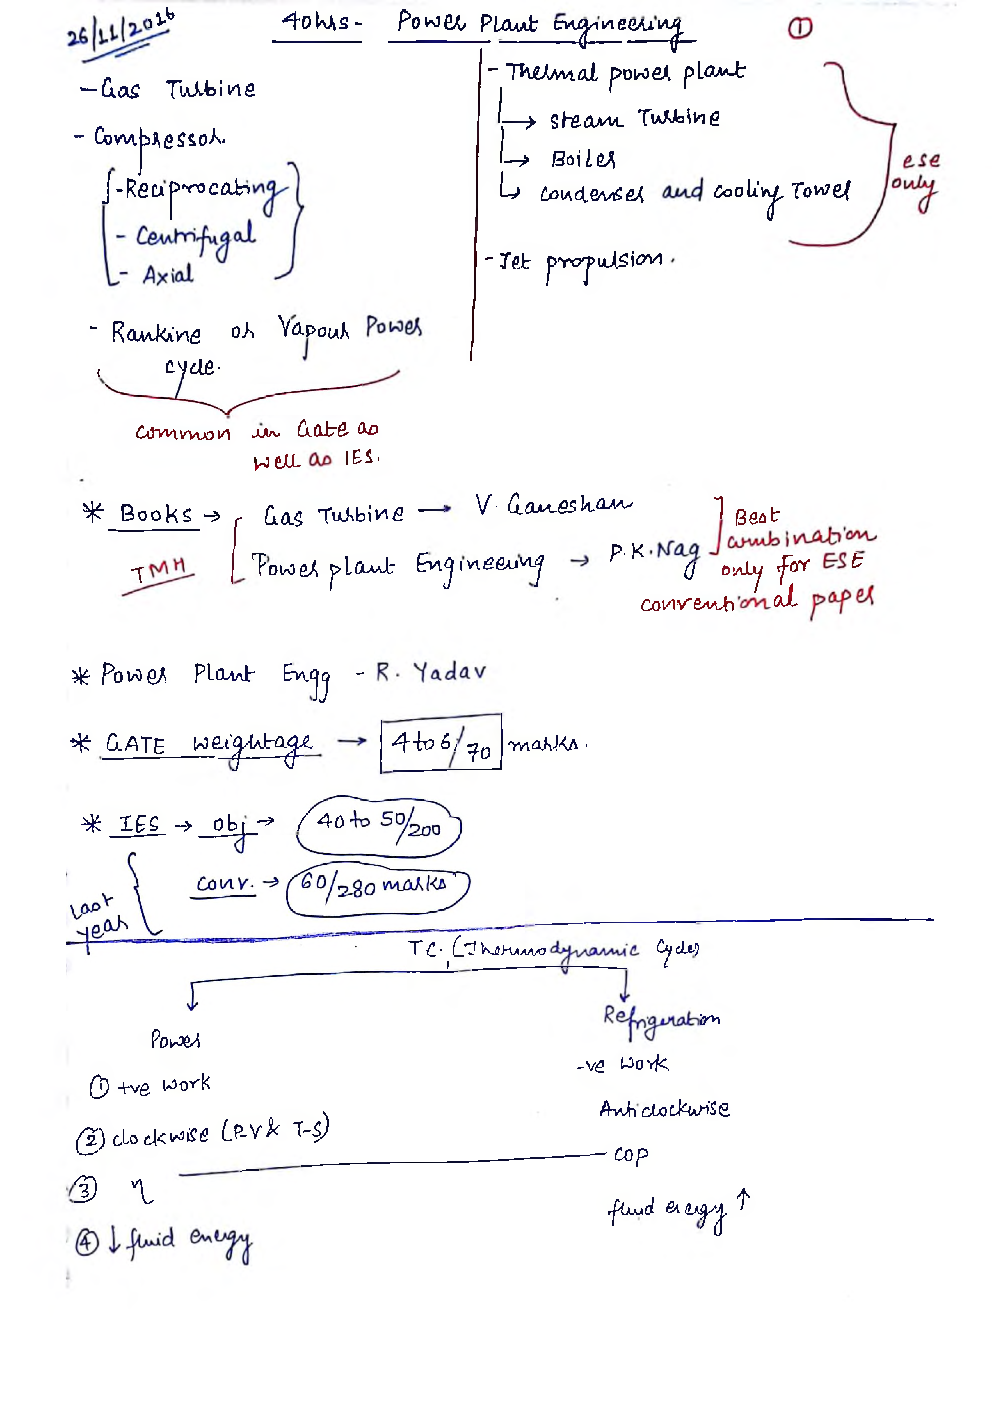 26/11/2016 40hrs - Power Plant Engineering ①
- Gas Turbine
- Compressor.
- Reciprocating
- Centrifugal
- Axial
- Rankine or Vapour Power
cycle.
common in Gate as
well as IES.
- Thermal power plant
→ steam Turbine
→ Boiler
↳ condenser and cooling Tower
ese
only
- Jet propulsion.
* Books → Gas Turbine → V. Ganeshan
TMH Power plant Engineering → P.K. Nag
Best
combination
only for ESE
conventional paper
* Power Plant Engg - R. Yadav
* GATE weightage → 4 to 6/70 marks.
* IES → obj → 40 to 50/200
conv. → 60/280 marks
Last
year
T.C. (Thermodynamic Cycles)
Power
① +ve work
② clockwise (P-V & T-S)
③ η
④ ↓ fluid energy
Refrigeration
-ve work
Anticlockwise
COP
fluid energy ↑